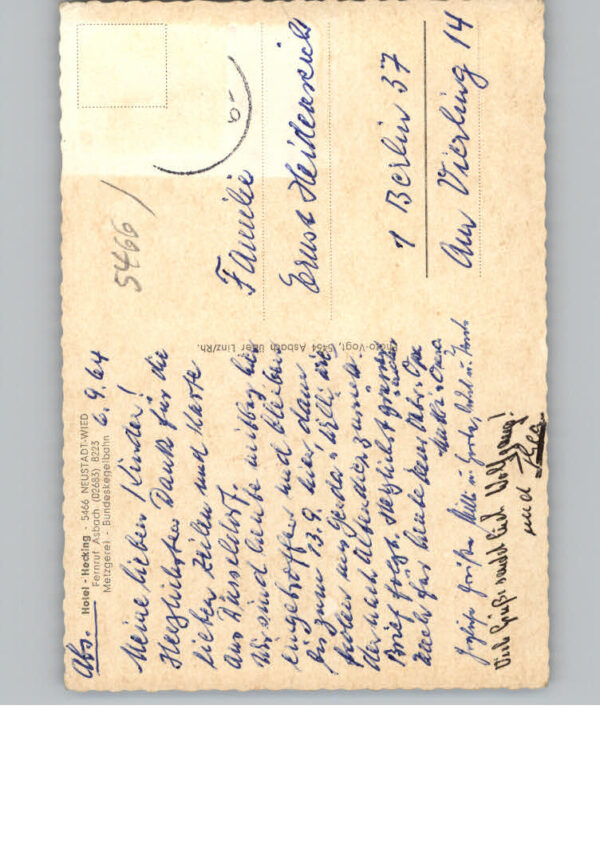 Abs. Hotel-Hecking - 5466 NEUSTADT-WIED
Fernruf Asbach (02683) 8223
Metzgerei - Bundeskegelbahn
2.9.64
Meine lieben Kinder!
Herzlichsten Dank für die
lieben Zeilen und Karte
aus Düsseldorf.
Wir sind heute mittag hier
eingetroffen und bleiben
bis zum 13.9. hier, dann
holen uns Gerda u. Willi
der nach Altendiez zurück.
Brief folgt. Herzlichst
auch für heute
Grüße Willi u.
Viele Grüße sendet Euch Wolfgang!
und
Photo-Vogt, 5464 Asbach über Linz/Rh.
5466
6-
Familie
Ernst Heidenreich
1 Berlin 37
Am Vierling 14